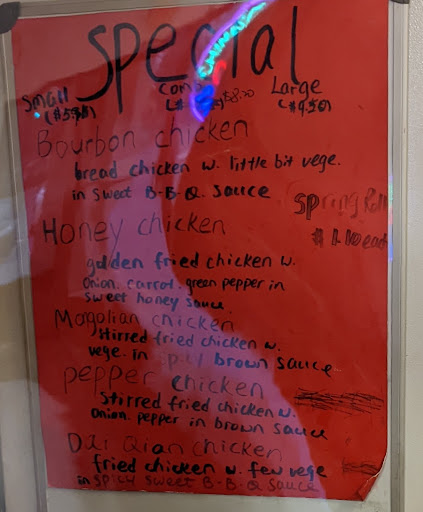 Special
Small Combo Large
($5.50) $8.20 ($9.50)
Bourbon chicken
bread chicken w. little bit vege.
in sweet B-B-Q. sauce
Spring Roll
$1.10 each
Honey chicken
golden fried chicken w.
onion. carrot. green pepper in
sweet honey sauce
Mogolian chicken
stirred fried chicken w.
vege. in spicy brown sauce
pepper chicken
stirred fried chicken w.
onion. pepper in brown sauce
Dai Qian chicken
fried chicken w. few vege
in spicy sweet B-B-Q sauce